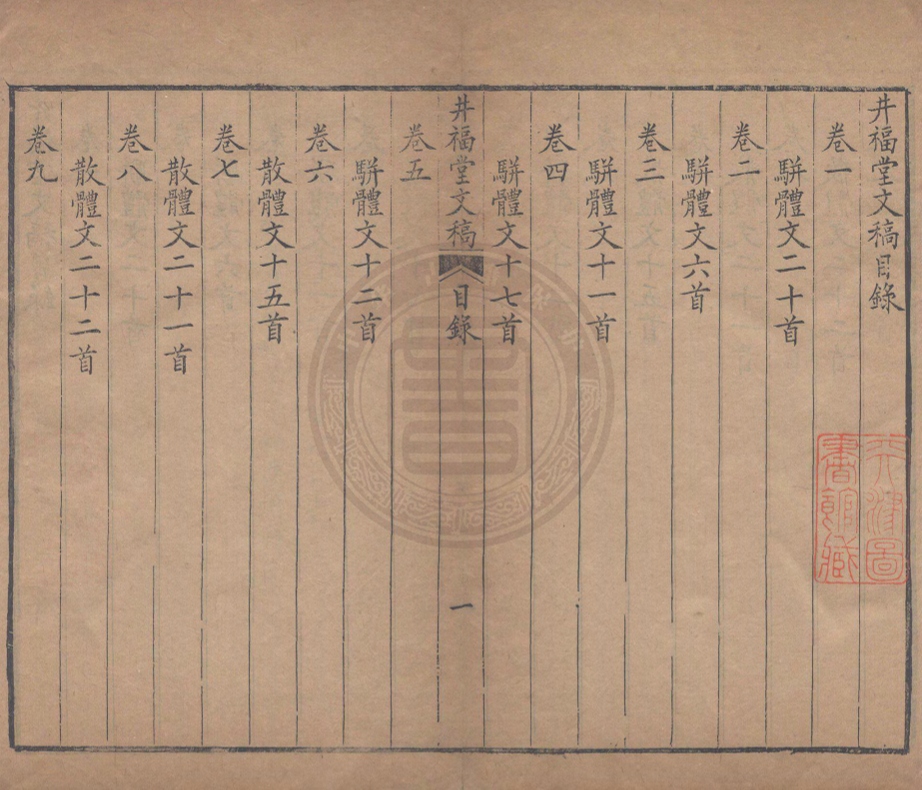 井福堂文稿目錄
卷一
駢體文二十首
卷二
駢體文六首
卷三
駢體文十一首
卷四
駢體文十七首
井福堂文稿 目錄 一
卷五
駢體文十二首
卷六
散體文十五首
卷七
散體文二十一首
卷八
散體文二十二首
卷九
天津圖
書館藏